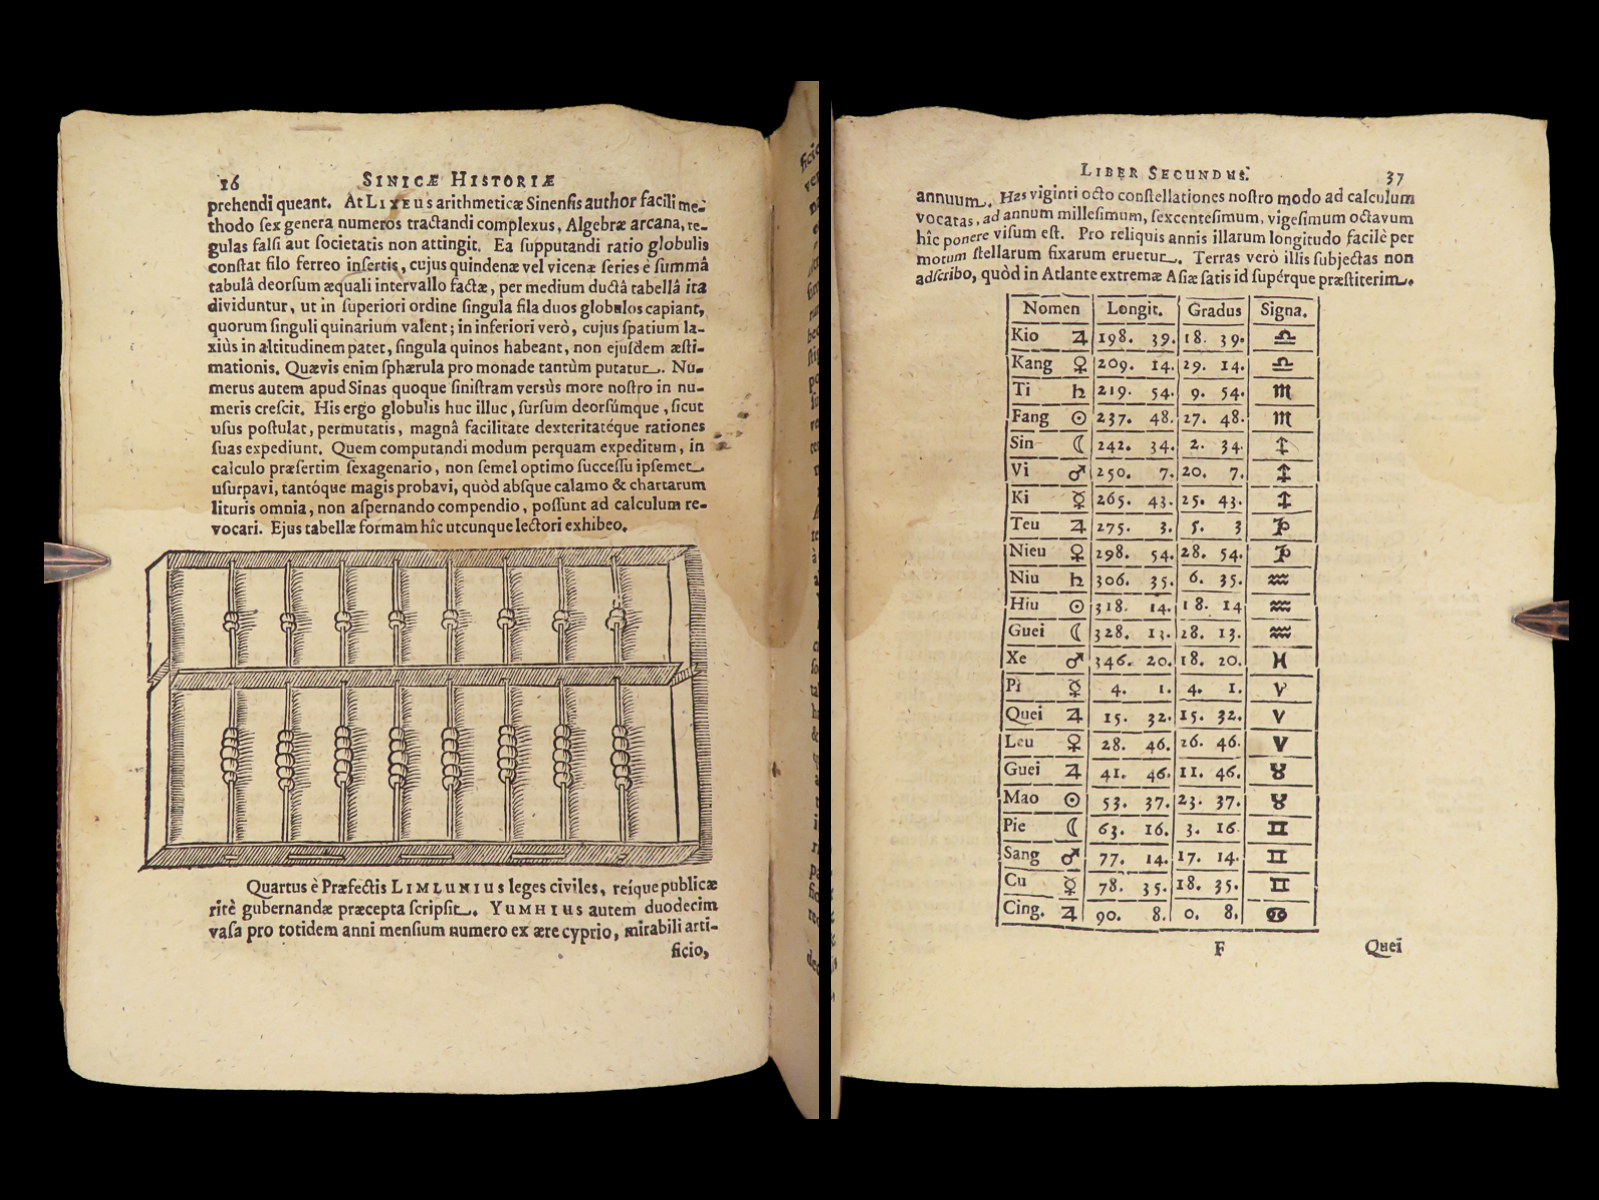 16 SINICÆ HISTORIÆ
prehendi queant. At LIXEUS arithmeticæ Sinensis author facili me-
thodo sex genera numeros tractandi complexus, Algebræ arcana, re-
gulas falsi aut societatis non attingit. Ea supputandi ratio globulis
constat filo ferreo insertis, cujus quindenæ vel vicenæ series è summâ
tabulâ deorsum æquali intervallo factæ, per medium ductâ tabellâ ita
dividuntur, ut in superiori ordine singula fila duos globulos capiant,
quorum singuli quinarium valent; in inferiori verò, cujus spatium la-
xiùs in altitudinem patet, singula quinos habeant, non ejusdem æsti-
mationis. Quævis enim sphærula pro monade tantùm putatur. Nu-
merus autem apud Sinas quoque sinistram versùs more nostro in nu-
meris crescit. His ergo globulis huc illuc, sursum deorsúmque, sicut
usus postulat, permutatis, magnâ facilitate dexteritatéque rationes
suas expediunt. Quem computandi modum perquam expeditum, in
calculo præsertim sexagenario, non semel optimo successu ipsemet
usurpavi, tantóque magis probavi, quòd absque calamo & chartarum
lituris omnia, non aspernando compendio, possunt ad calculum re-
vocari. Ejus tabellæ formam hîc utcunque lectori exhibeo.
Quartus è Præfectis LIMLUNIUS leges civiles, reíque publicæ
ritè gubernandæ præcepta scripsit. YUMHIUS autem duodecim
vasa pro totidem anni mensium numero ex ære cyprio, mirabili arti-
ficio,
LIBER SECUNDUS. 37
annuum. Has viginti octo constellationes nostro modo ad calculum
vocatas, ad annum millesimum, sexcentesimum, vigesimum octavum
hîc ponere visum est. Pro reliquis annis illarum longitudo facilè per
motum stellarum fixarum eruetur. Terras verò illis subjectas non
adscribo, quòd in Atlante extremæ Asiæ satis id supérque præstiterim.
Nomen Longit. Gradus Signa.
Kio ♃ 198. 39. 18. 39. ♎
Kang ♀ 209. 14. 29. 14. ♎
Ti ♄ 219. 54. 9. 54. ♏
Fang ☉ 237. 48. 27. 48. ♏
Sin ☾ 242. 34. 2. 34. ♐
Vi ♂ 250. 7. 20. 7. ♐
Ki ☿ 265. 43. 25. 43. ♐
Teu ♃ 275. 3. 5. 3 ♑
Nieu ♀ 298. 54. 28. 54. ♑
Niu ♄ 306. 35. 6. 35. ♒
Hiu ☉ 318. 14. 18. 14 ♒
Guei ☾ 328. 13. 28. 13. ♒
Xe ♂ 346. 20. 18. 20. ♓
Pi ☿ 4. 1. 4. 1. ♈
Quei ♃ 15. 32. 15. 32. ♈
Leu ♀ 28. 46. 26. 46. ♈
Guei ♃ 41. 46. 11. 46. ♉
Mao ☉ 53. 37. 23. 37. ♉
Pie ☾ 63. 16. 3. 16 ♊
Sang ♂ 77. 14. 17. 14. ♊
Cu ☿ 78. 35. 18. 35. ♊
Cing. ♃ 90. 8. 0. 8. ♋
F Quei